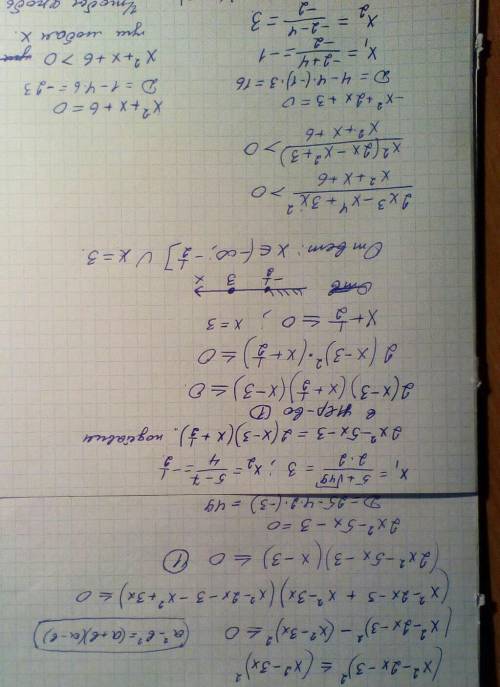 (x²-2x-3)² ≤ (x²-3x)²
(x²-2x-3)² - (x²-3x)² ≤ 0   a²-b²=(a+b)(a-b)
(x²-2x-3 + x²-3x)(x²-2x-3-x²+3x) ≤ 0
(2x²-5x-3)(x-3) ≤ 0   ①
2x²-5x-3=0
D=25-4·2·(-3)=49
x₁ = (5+√49)/(2·2) = 3 ; x₂ = (5-7)/4 = -1/2
2x²-5x-3 = 2(x-3)(x+1/2). подставим
в нер-во ①
2(x-3)(x+1/2)(x-3) ≤ 0.
2(x-3)²·(x+1/2) ≤ 0
x+1/2 ≤ 0 ; x=3
-1/2 3 x
Ответ: x∈(-∞; -1/2] ∪ x=3.
(2x³-x⁴+3x²)/(x²+x+6) > 0
x²(2x-x²+3)/(x²+x+6) > 0
-x²+2x+3=0
D=4-4·(-1)·3=16
x₁ = (-2+4)/(-2) = -1
x₂ = (-2-4)/(-2) = 3
x²+x+6=0
D=1-4·6=-23
x²+x+6>0
при любом x.
Чтобы дробь